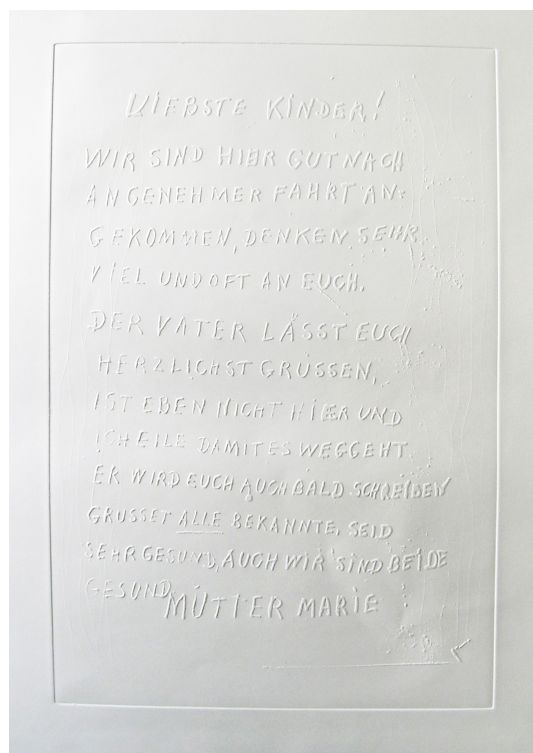 LIEBSTE KINDER!
WIR SIND HIER GUT NACH
ANGENEHMER FAHRT AN-
GEKOMMEN, DENKEN SEHR
VIEL UND OFT AN EUCH.
DER VATER LÄSST EUCH
HERZLICHST GRÜSSEN,
IST EBEN NICHT HIER UND
ICH EILE DAMIT ES WEGGEHT.
ER WIRD EUCH AUCH BALD SCHREIBEN
GRÜSSET ALLE BEKANNTE, SEID
SEHR GESUND, AUCH WIR SIND BEIDE
GESUND,
MUTTER MARIE